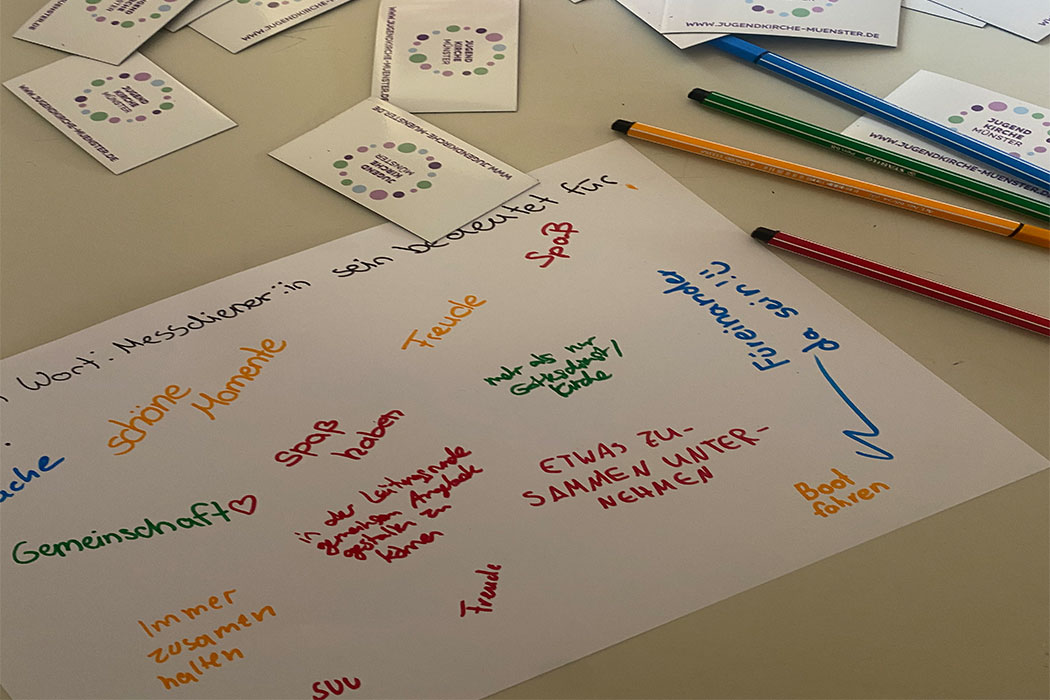 WWW.JUGENDKIRCHE-MUENSTER.DE
JUGEND
KIRCHE
MÜNSTER
WWW.JUGENDKIRCHE-MUENSTER.DE
JUGEND
KIRCHE
MÜNSTER
WWW.JUGENDKIRCHE-MUENSTER.DE
JUGEND
KIRCHE
MÜNSTER
WWW.JUGENDKIRCHE-MUENSTER.DE
WWW.JUGENDKIRCHE-MUENSTER.DE
JUGEND
KIRCHE
MÜNSTER
WWW.JUGENDKIRCHE-MUENSTER.DE
Wort: Messdiener:in sein bedeutet für
Spaß
Freude
schöne
Momente
Füreinander
da sein!
mehr als nur
Gottesdienst/
Kirche
Spaß
haben
ache
Gemeinschaft
in der Leitungsrunde
gemeinsam Angebote
gestalten zu
können
ETWAS ZU-
SAMMEN UNTER-
NEHMEN
Boot
fahren
Freude
Immer
zusamen
halten